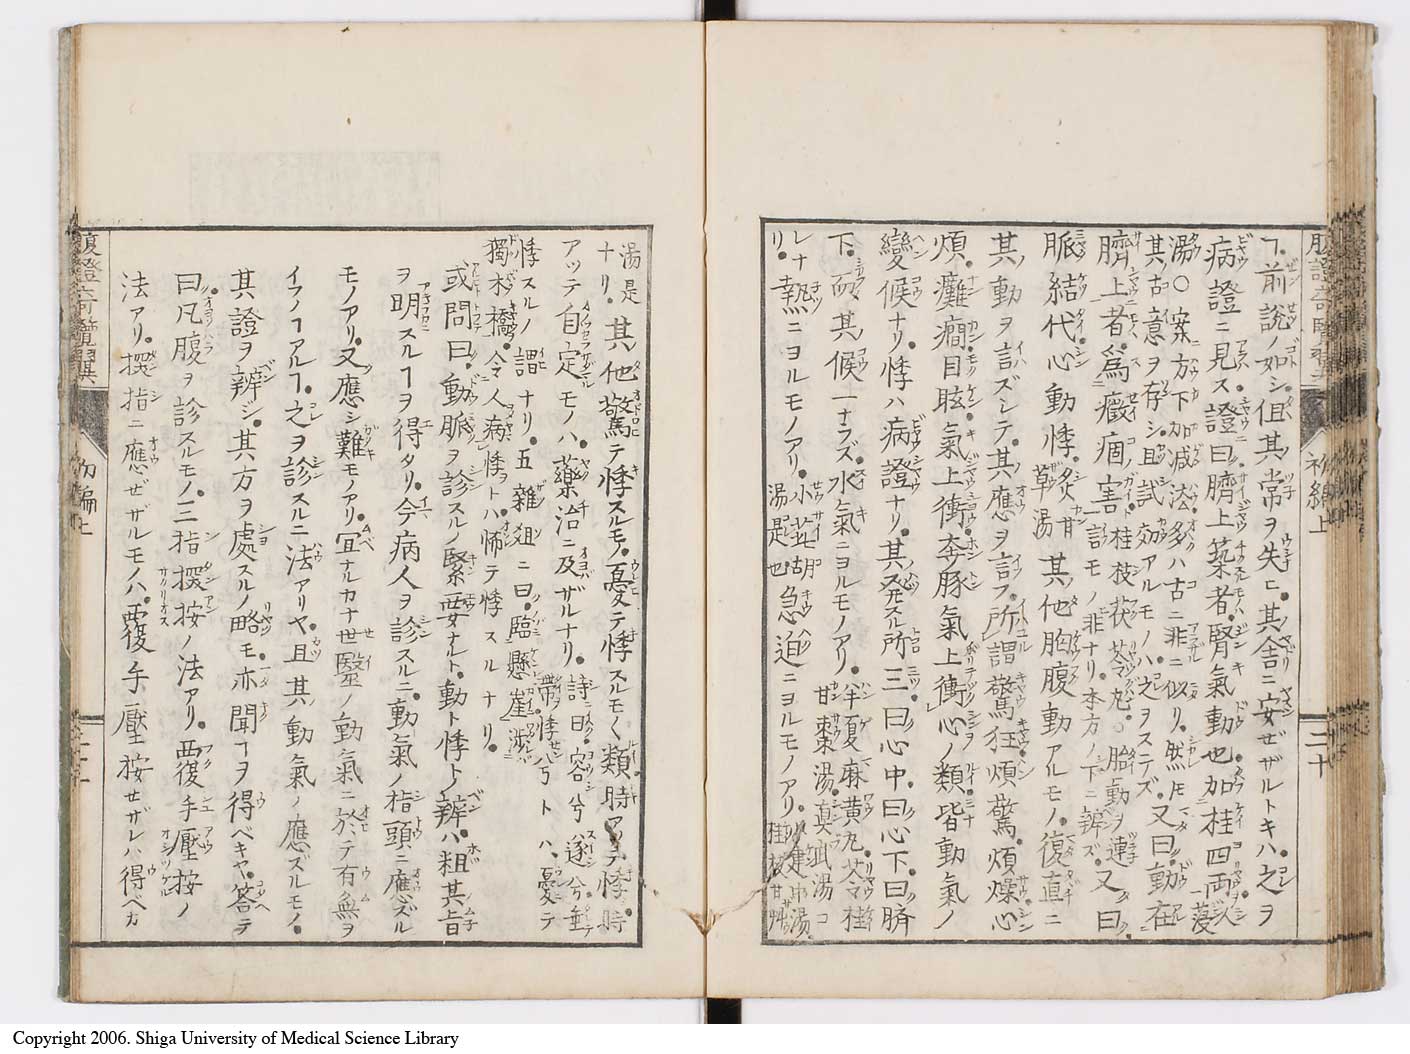 腹證奇覽翼
初編上
二十
ヿ前說ノ如シ但其常ヲ失ヒ其舍ニ安ゼザルトキハ之ヲ
病證ニ見ス證曰臍上築者腎氣動也加桂四兩
湯〇案方下加減法多ハ古ニ非ニ似リ然𪜈
其古意ヲ存シ且試効アルモノハ之ヲステズ又曰動在
臍上者爲癥痼害言モノ非ナリ本方ノ下ニ辨ズ
桂枝茯苓丸〇胎動ヲ連又曰
脈結代心動悸炙甘草湯其他胸腹動アルモノ復直ニ
其動ヲ言ズシテ其應ヲ言フ所謂驚狂煩驚煩燥心
煩癱癇目眩氣上衝奔豚氣上衝心ノ類皆動氣ノ
變候ナリ悸ハ病證ナリ其発スル所三曰心中曰心下曰臍
下而其候一ナラズ水氣ニヨルモノアリ半夏麻黃丸苓桂甘棗湯真武湯コ
レナ
リ熱ニヨルモノアリ小柴胡湯是也急迫ニヨルモノアリ小建中湯桂枝甘艸
湯是
ナリ其他驚テ悸スルモノ憂テ悸スルモノ類時アッテ悸時
アッテ自定モノハ藥治ニ及ザルナリ詩曰容兮遂兮垂
帶悸兮トハ憂テ
悸スルノ謂ナリ五雜俎ニ曰臨懸崖
獨木橋令人病悸トハ怖テ悸スルナリ
或問曰動脈ヲ診スルノ緊要ナルト動ト悸ト辨ハ粗其旨
ヲ明スルヿヲ得タリ今病人ヲ診スルニ動氣ノ指頭ニ應ズル
モノアリ又應シ難モノアリ冝ナルカナ世醫ノ動氣ニ於テ有無ヲ
イフノヿアルヿ之ヲ診スルニ法アリヤ且其動氣ノ應ズルモノ
其證ヲ辨ジ其方ヲ處スルノ略モ亦聞ヿヲ得ベキヤ答テ
曰凡腹ヲ診スルモノ三指按ノ法アリ覆手壓按ノ
法アリ指ニ應ゼザルモノハ覆手壓按セザレハ得ベカ
腹證奇覽翼
初編上